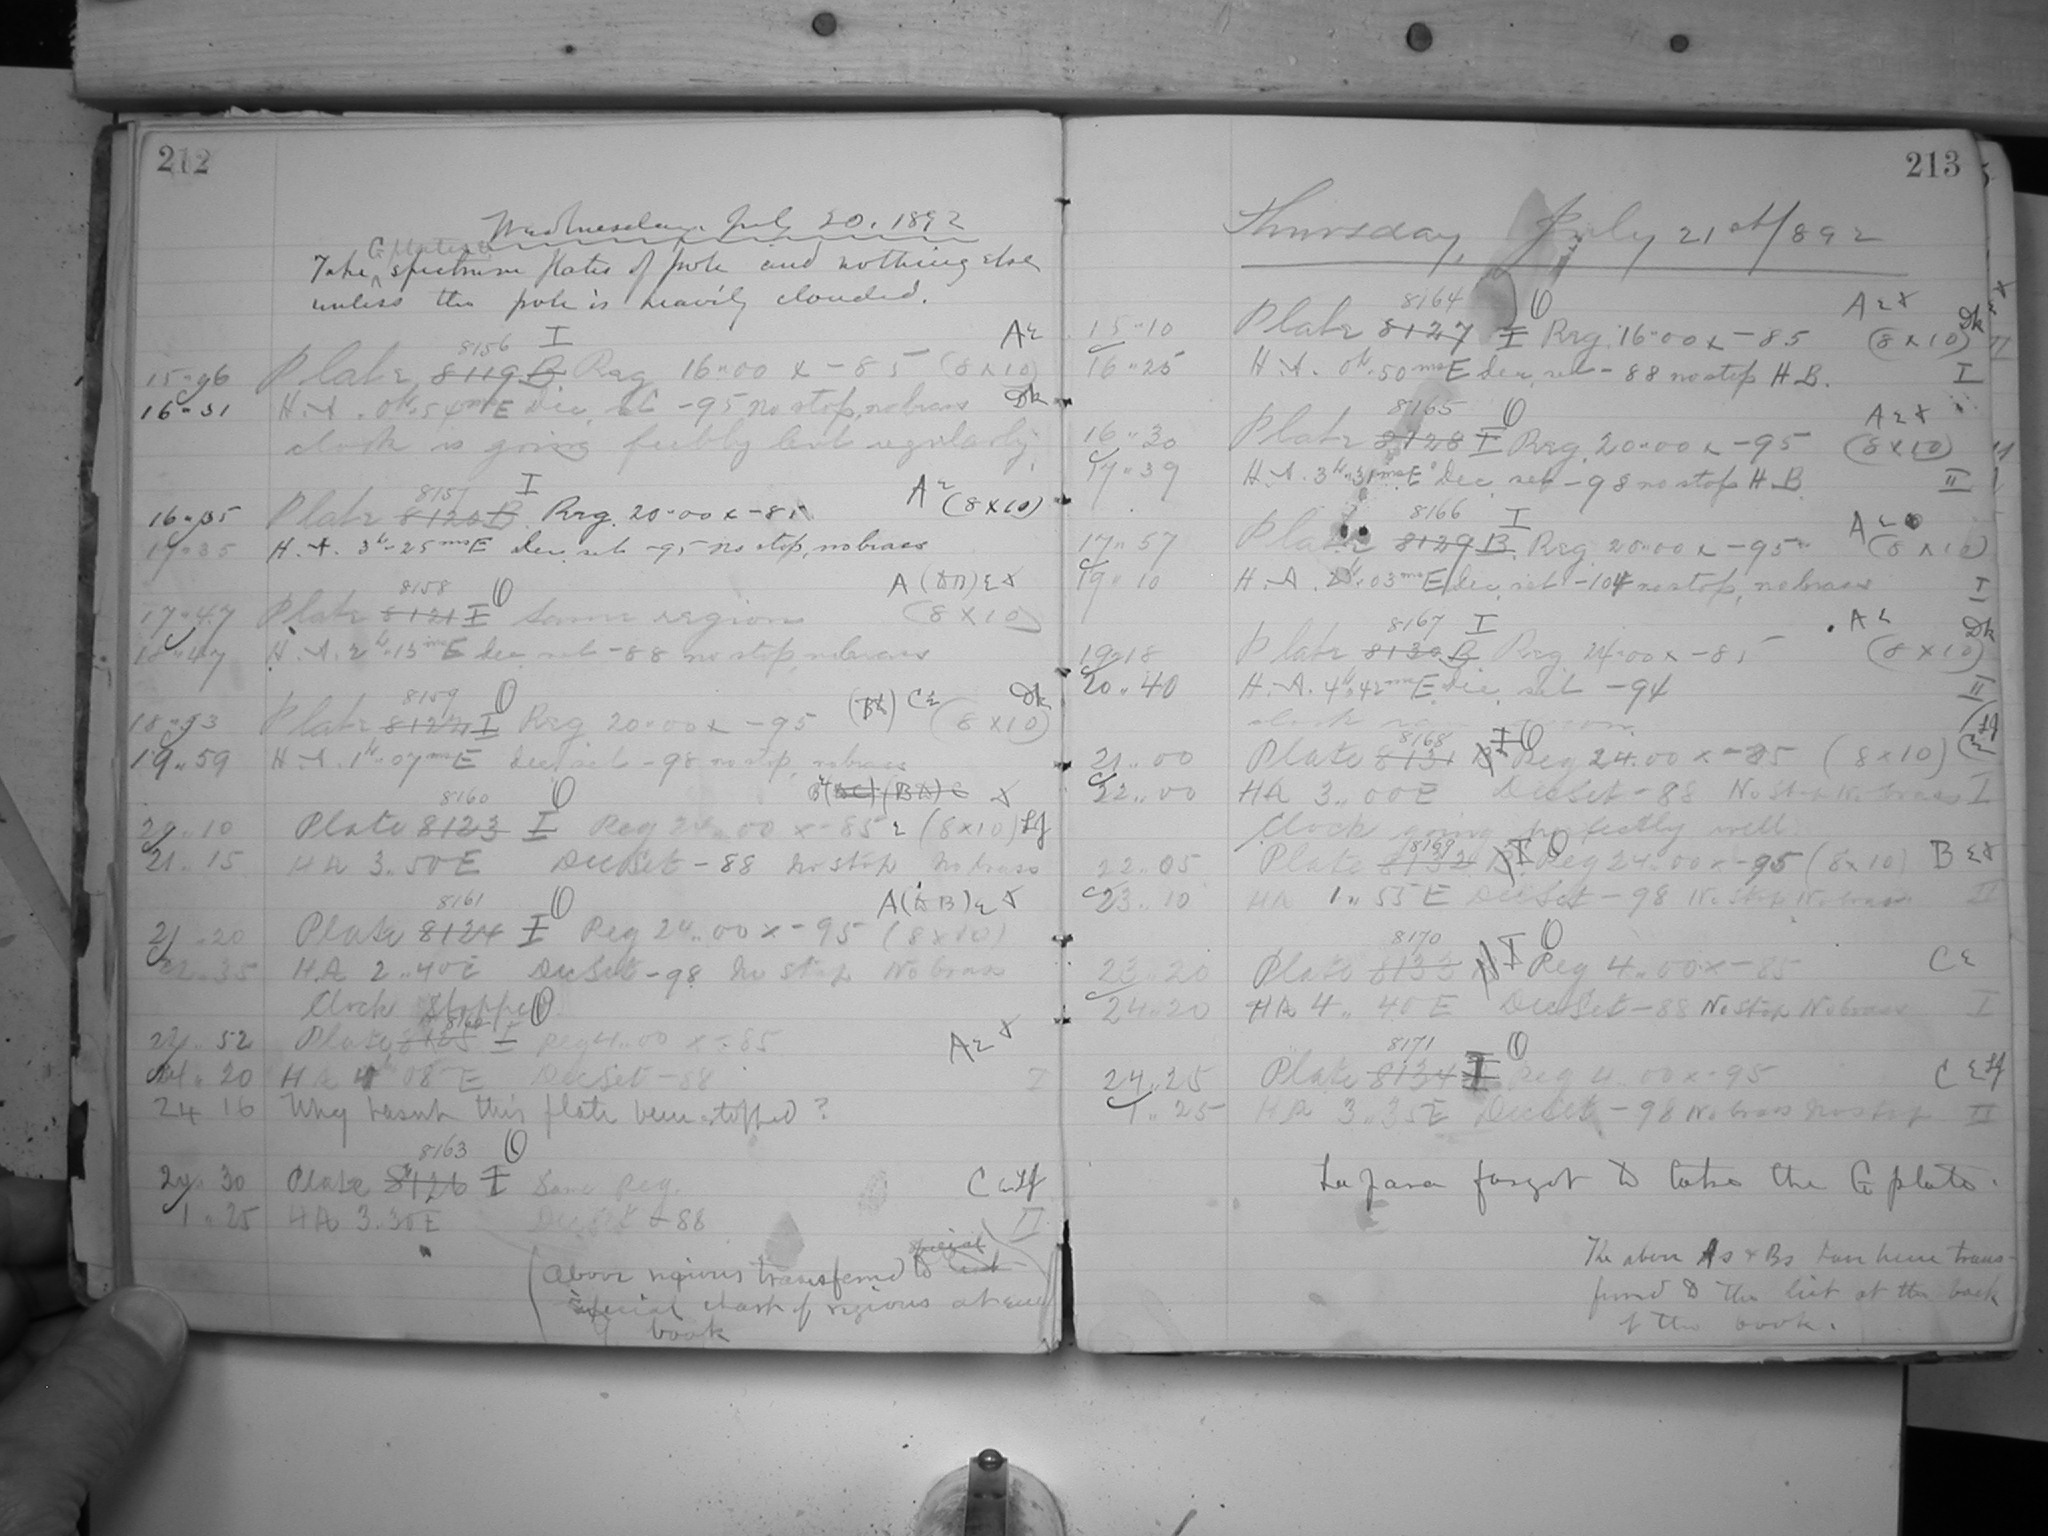 212
Wednesday July 20, 1892
G plates &
Take spectrum plates of pole and nothing else
unless the pole is heavily clouded.
8156 I Aε
15 06 Plate 8119 B Reg 16 00 x -85 (8x10)
16 31 H.A. 0h 54ms E Dec. set -95 No stop, no brass Dk
clock is going feebly but regularly
8157 I Aε
16 35 Plate 8120 B. Reg. 20 00 x -85 (8x10)
17 35 H.A. 3h 25ms E Dec. set -95 no stop, no brass
8158 O
17 47 Plate 8121 I Same region (8x10)
18 47 H.A. 2h 15ms E dec. set -88 no stop, no brass
8159 O Cε Dk
18 53 Plate 8122 I Reg 20 00 x -95 (8x10)
19 59 H.A. 1h 07ms E dec. set -98 no stop, no brass
8160 O
20 10 Plate 8123 I Reg 24 00 x -85 ε (8x10) Lf
21 15 HA 3.50 E Dec Set -88 No stop No brass
8161 O
21 20 Plate 8124 I Reg 24 00 x -95 (8x10)
22 35 HA 2 40 E Dec Set -98 No stop No brass
Clock stopped
8162 O
22 52 Plate 8125 I Reg 4 00 x -85
24 20 HA 4 08 E Dec Set -88 I
24 16 Why hasn't this plate been stopped?
8163 O
24 30 Plate 8126 I Same Reg. C ε Lf
1 25 HA 3.30 E Dec Set -88 II
(Above regions transferred to special
special chart of regions at end
of book
213
Thursday, July 21st 1892
8164 O
15 10 Plate 8127 I Reg. 16 00 x -85 (8x10) Dk
16 25 H.A. 0h 50ms E Dec. set -88 no stop H B. I
8165 O
16 30 Plate 8128 I Reg. 20 00 x -95 (8x10)
17 39 H.A. 3h 31ms E Dec. set -98 no stop H B II
8166 I
17 57 Plate 8129 B Reg. 20 00 x -95 (8x10)
19 10 H.A. 2h 03ms E dec. set -104 no stop, no brass I
8167 I Aε Dk
19 18 Plate 8130 B Reg. 24 00 x -85 (8x10)
20 40 H.A. 4h 42ms E Dec. set -94 II
8168 I O
21 00 Plate 8131 Reg 24.00 x -85 (8x10)
22 00 HA 3 00 E Dec Set -88 No Stop No brass I
Clock going perfectly well
8169 I O
22 05 Plate 8132 Reg 24 00 x -95 (8x10)
23 10 HA 1 55 E Dec Set -98 No Stop No brass II
8170 I O
23 20 Plate 8133 Reg 4 00 x -85 Cε
24 20 HA 4 40 E Dec Set -88 No Stop No brass I
8171 O
24 25 Plate 8134 I Reg 4 00 x -95 C ε Lf
1 25 HA 3 35 E Dec Set -98 No brass No stop II
La Jara forgot to take the G plate.
The above As & Bs have been trans-
ferred to the list at the back
of the book.